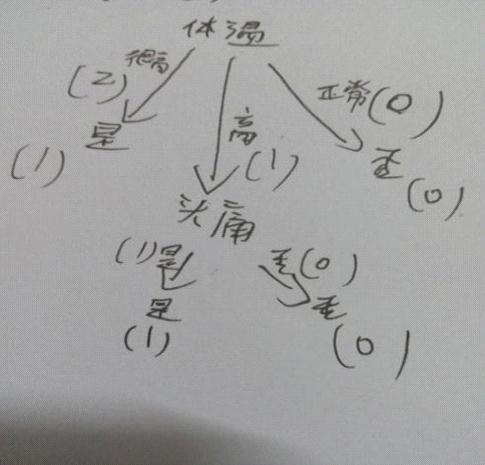 体温
很高
(2)
正常(0)
高
(1)
是
(1)
否
(0)
头痛
(1)是
否(0)
是
(1)
否
(0)